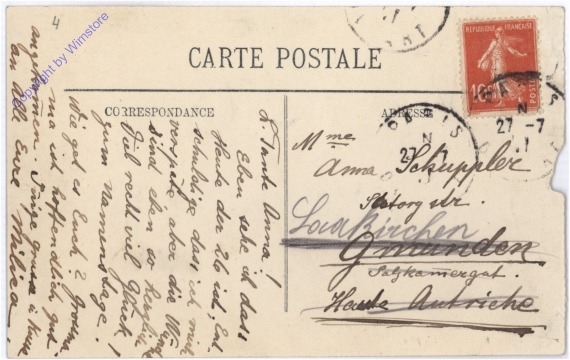 4
Copyright by Wimstore
CARTE POSTALE
CORRESPONDANCE
ADRESSE
REPUBLIQUE FRANÇAISE
10
POSTES
PARIS
27 -7
PARIS
27
L. Tante Anna!
Eben sehe ich dass
Heute der 26 ist. Ent-
schuldige dass ich mich
verspäte aber die
sind eben so herzlich
Viel recht viel Glück
zum Namenstage!
Wie get es Euch? Grossma-
ma ist hoffendlich gut
angekommen. Innige Grüsse u. Küsse
an Alle Eure Milica
Mme
Anna Schuppler
Satorystr.
Laakirchen
Gmunden
Salzkamergut.
Haute Autriche